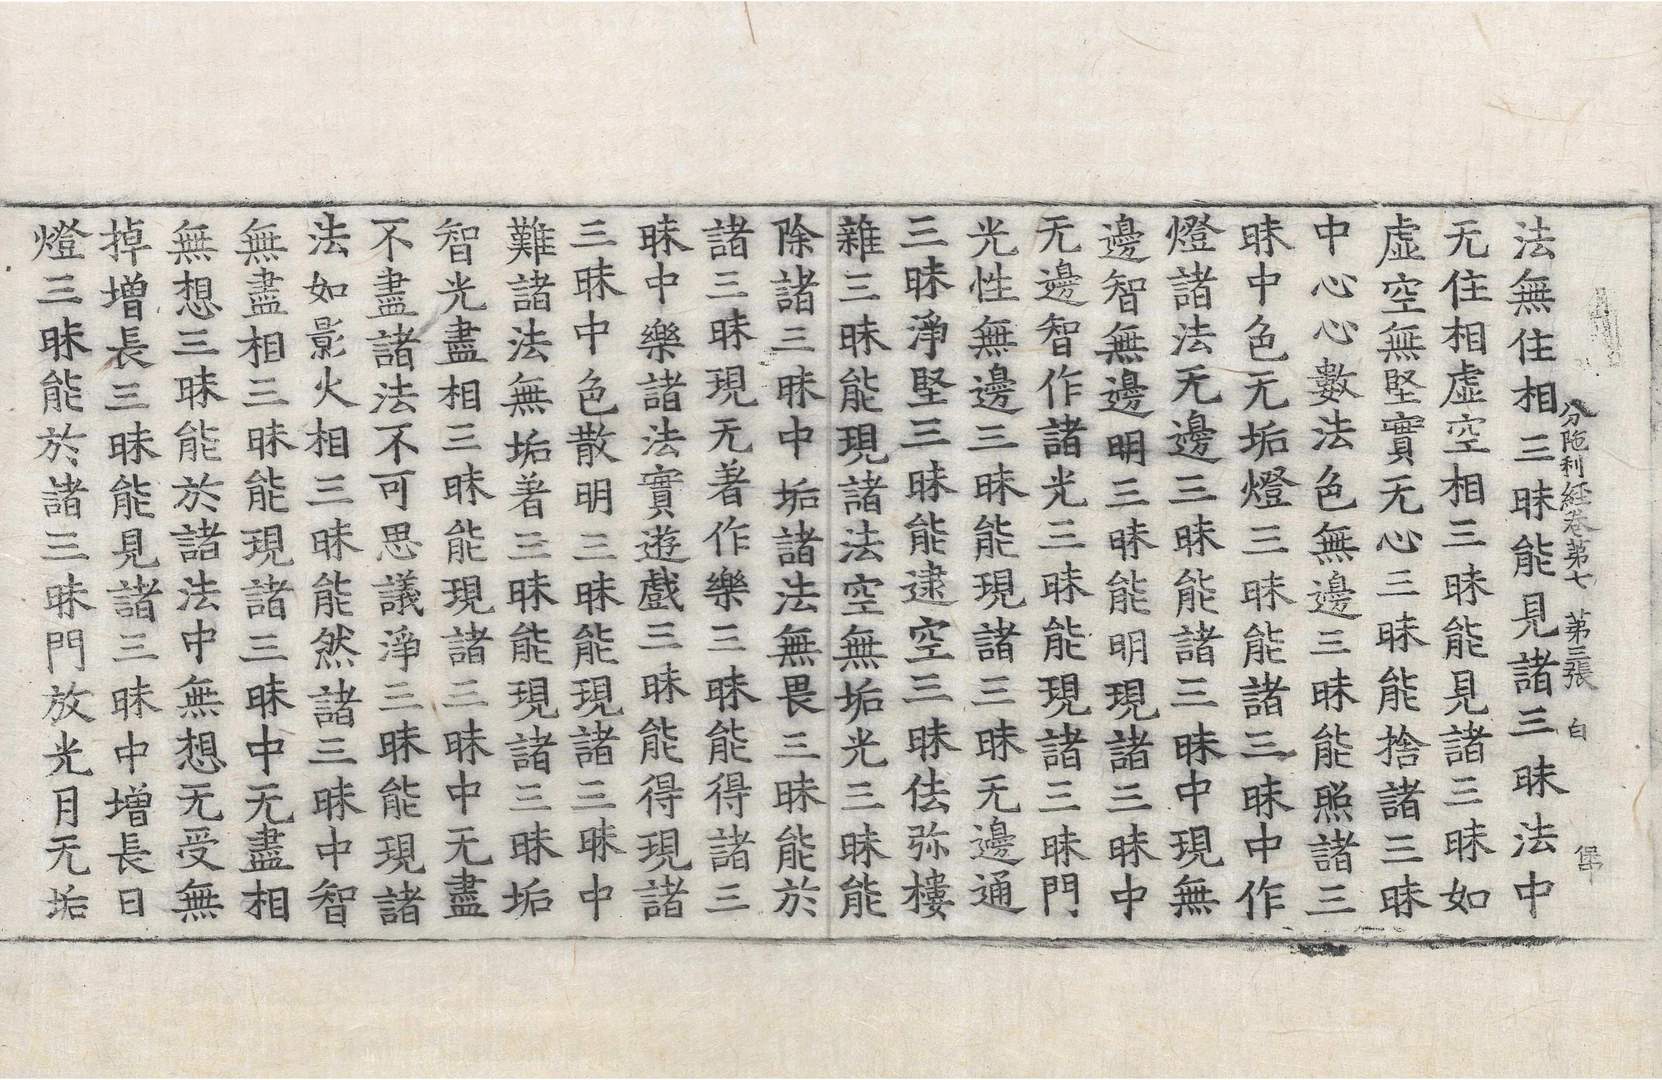 分陁利經卷第七 第三張 白
法無住相三昧能見諸三昧法中
无住相虛空相三昧能見諸三昧如
虛空無堅實无心三昧能捨諸三昧
中心心數法色無邊三昧能照諸三
昧中色无垢燈三昧能諸三昧中作
燈諸法无邊三昧能諸三昧中現無
邊智無邊明三昧能明現諸三昧中
无邊智作諸光三昧能現諸三昧門
光性無邊三昧能現諸三昧无邊通
三昧淨堅三昧能逮空三昧佉弥樓
雜三昧能現諸法空無垢光三昧能
除諸三昧中垢諸法無畏三昧能於
諸三昧現无著作樂三昧能得諸三
昧中樂諸法實遊戲三昧能得現諸
三昧中色散明三昧能現諸三昧中
難諸法無垢著三昧能現諸三昧垢
智光盡相三昧能現諸三昧中无盡
不盡諸法不可思議淨三昧能現諸
法如影火相三昧能然諸三昧中智
無盡相三昧能現諸三昧中无盡相
無想三昧能於諸法中無想无受無
掉增長三昧能見諸三昧中增長日
燈三昧能於諸三昧門放光月无垢